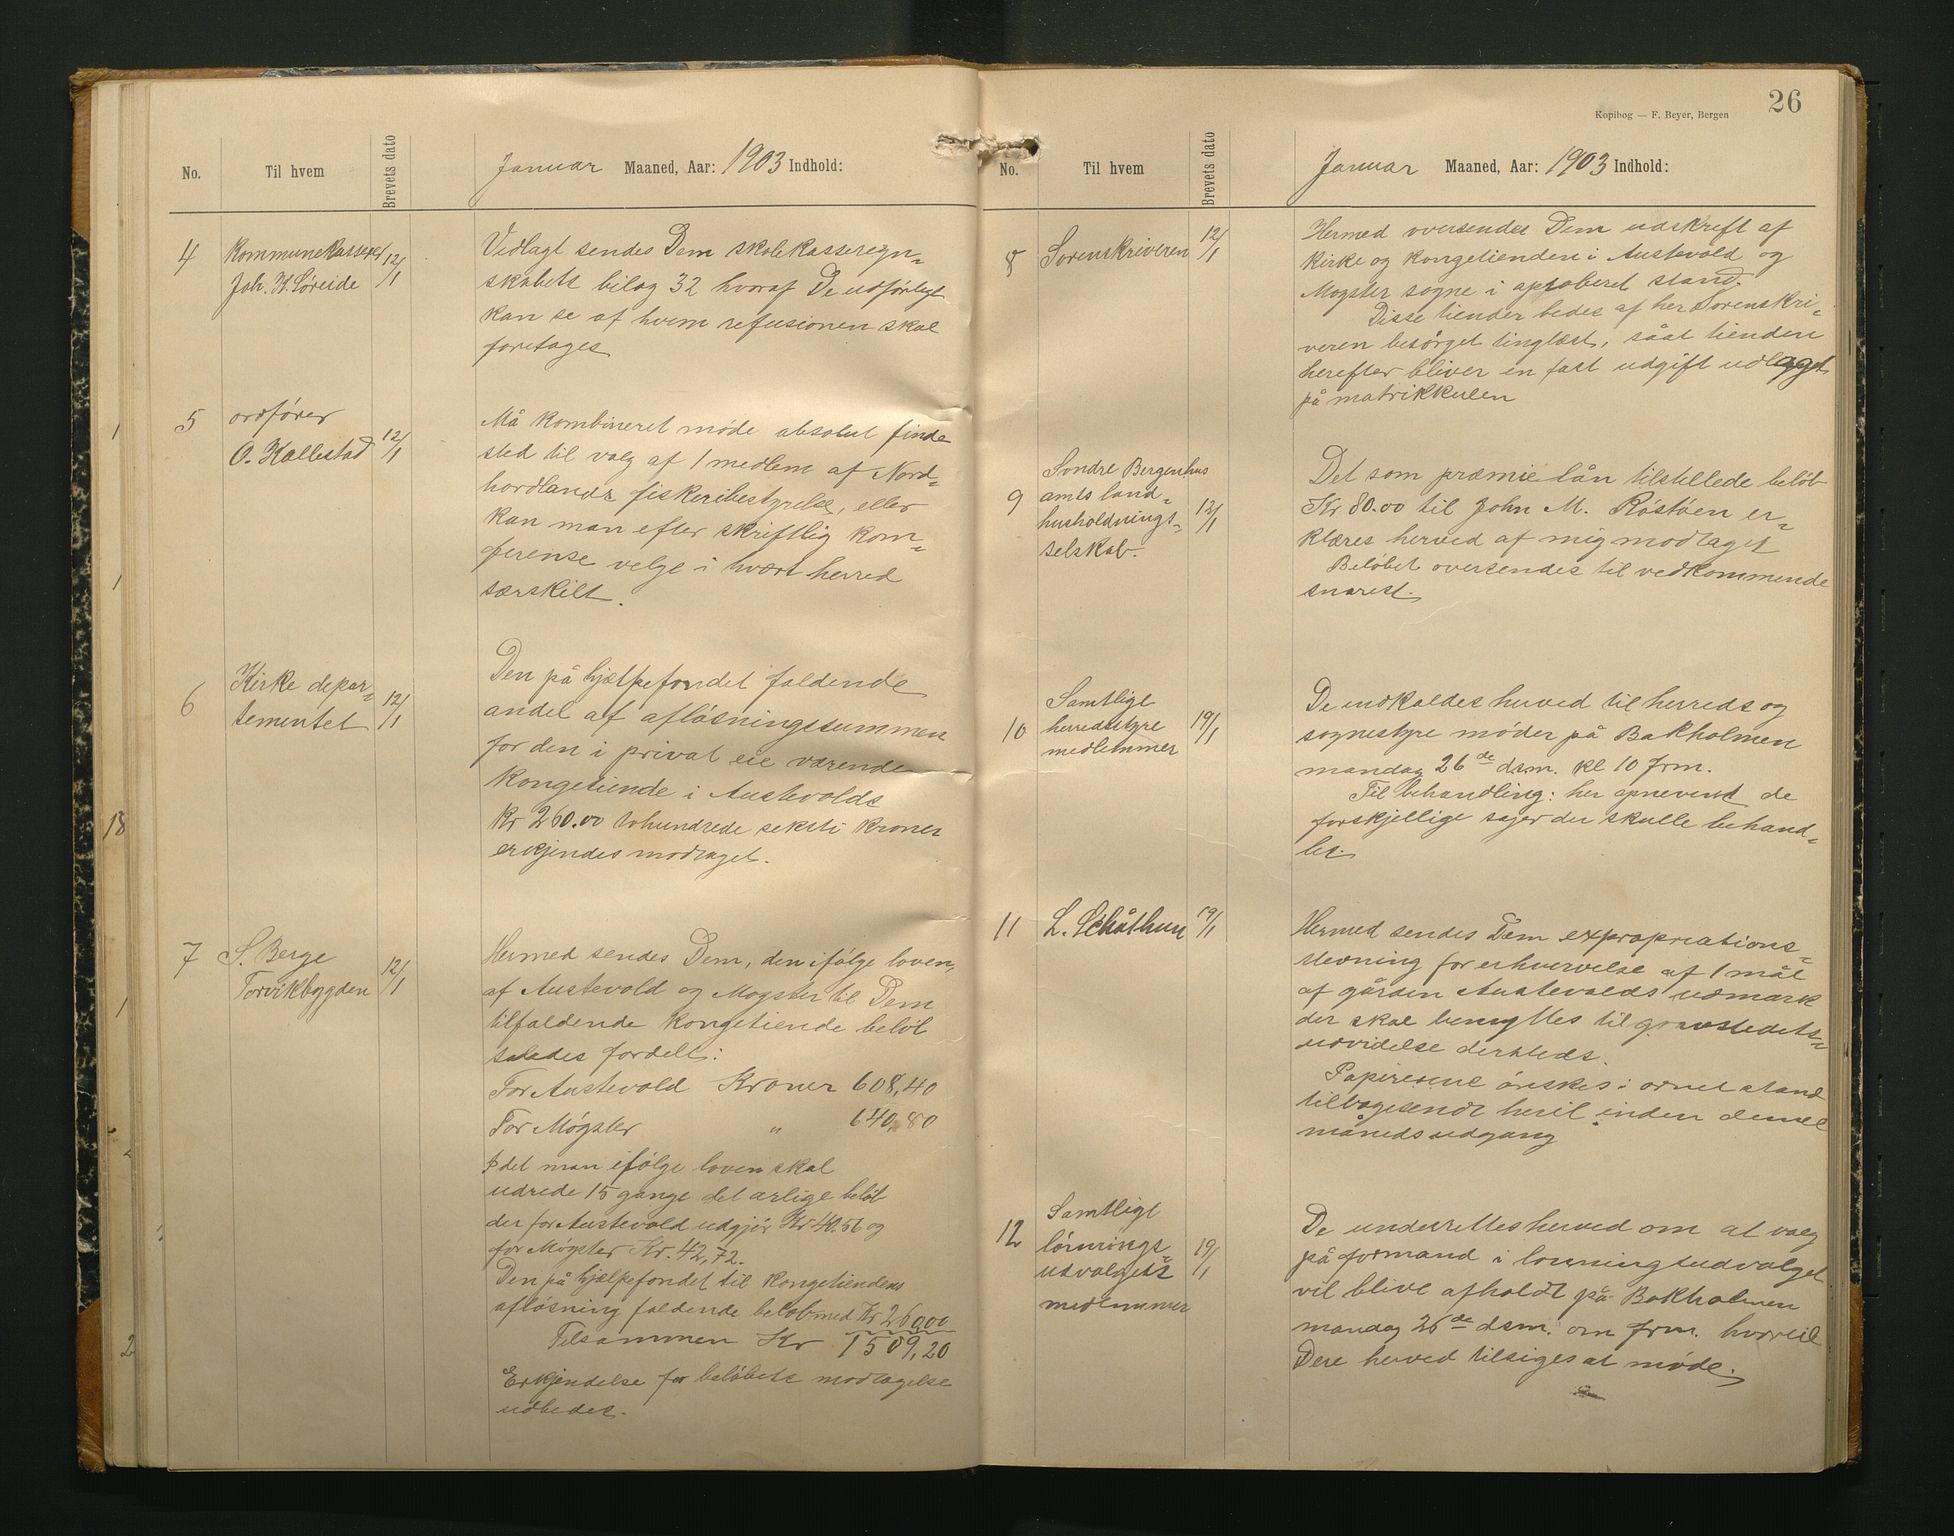 No.
Til hvem
Brevets dato
Januar Maaned, Aar: 1903 Indhold:
4
Kommunekasserer
Joh. K. Søreide
12/1
Vedlagt sendes Dem skolekasseregn-
skabets bilag 32 hvoraf De udførligt
kan se af hvem refusionen skal
foretages
5
ordfører
O. Kallestad
12/1
Må kombineret møde absolut finde
sted til valg af 1 medlem af Nord-
hordlands fiskeribestyrelse, eller
kan man efter skriftlig kon-
ferense velge i hvert herred
særskilt.
6
Kirke depar-
tementet
12/1
Den på hjælpefondet faldende
andel af afløsningssummen
for den i privat eie værende
Kongetiende i Austevolds
Kr 260.00 tohundrede seksti kroner
erkjendes modtaget.
7
S. Berge
Torvikbygden
12/1
Hermed sendes Dem, den ifølge loven,
af Austevold og Møgster til Dem
tilfaldende kongetiende beløb
saledes fordelt:
For Austevold Kroner 608,40
For Møgster " 640,80
Idet man ifølge loven skal
udrede 15 gange det arlige beløb
der for Austevold udgjør Kr 40.56 og
for Møgster Kr. 42,72.
Den på hjælpefondet til kongetiendens
afløsning faldende beløb med Kr 260,00
Tilsammen Kr 1509,20
Erkjendelse for beløbets modtagelse
udbedes.
26
Kopibog — F. Beyer, Bergen
No.
Til hvem
Brevets dato
Januar Maaned, Aar: 1903 Indhold:
8
Sorenskriveren
12/1
Hermed oversendes Dem udskrift af
kirke og kongetienden i Austevold og
Møgster sogne i aproberet stand.
Disse tiender bedes af her Sorenskri-
veren besørget tinglæst, såat tienden
herefter bliver en fast udgift udlagget
på matrikkulen
9
Søndre Bergenhus
amts land-
husholdnings-
selskab.
12/1
Det som præmie lån tilstillede beløb
Kr 80.00 til John M. Røstøen er-
klæres herved af mig modtaget
Beløbet oversendes til vedkommende
snarest.
10
Samtlige
herredstyre
medlemmer
19/1
De indkaldes herved til herreds og
sognestyre møder på Bakholmen
mandag 26de dsm. kl 10 frm.
Til behandling: her opnevent de
forskjellige sager der skulle behand-
les.
11
L. Schåthun
19/1
Hermed sendes Dem expropriations-
stevning for erhvervelse af 1 mål
af gården Austevolds udmark
der skal benyttes til gravstedets-
udvidelse dersteds.
Papirerene ønskes i ornet stand
tilbagesendt hertil inden denne
måneds udgang
12
Samtlige
lønnings-
udvalgets
medlemmer
19/1
De underrettes herved om at valg
på formand i lønningsudvalget
vil blive afholdt på Bakholmen
mandag 26de dsm. om frm. hvortil
Dere herved tilsiges at møde.
1
1
18
1
2